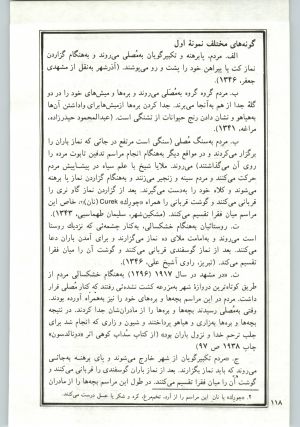 گونه‌های مختلف نمونهٔ اول
الف. مردم، پابرهنه و تکبیرگویان به‌مصلی می‌روند و به‌هنگام گزاردن
نماز کت یا پیراهن خود را پشت و رو می‌پوشند. (آذرشهر به‌نقل از مشهدی
جعفر، ۱۳۴۶).
ب. مردم گروه گروه به‌مصلی می‌روند و بره‌ها و میش‌های خود را در دو
گلهٔ جدا از هم به‌آنجا می‌برند. جدا کردن بره‌ها از میش‌ها برای واداشتن آن‌ها
به‌هیاهو و نشان دادن رنج حیوانات از تشنگی است. (عبدالمحمود حیدرزاده،
مراغه، ۱۳۴۱).
پ. مردم به‌سنگ مُصلی (سنگی است مرتفع در جائی که نماز باران را
برگزار می‌کردند و در مواقع دیگر به‌هنگام انجام مراسم تدفین تابوت مرده را
روی آن می‌گذاشتند) می‌روند. ملایا شیخ با علم سیاه در پیشاپیش مردم
حرکت می‌کند و مردم سینه و زنجیر می‌زنند و به‌هنگام گزاردن نماز پا برهنه
می‌شوند و کلاه خود را به‌دست می‌گیرند. بعد از گزاردن نماز گاو نری را
قربانی می‌کنند و گوشت قربانی را همراه «چوراک» Curek (نان)۲، خاص این
مراسم میان فقرا تقسیم می‌کنند. (مشکین‌شهر، سلیمان طهماسبی، ۱۳۴۳).
ت. روستائیان به‌هنگام خشکسالی، به‌کنار چشمه‌ئی که نزدیك روستا
است می‌روند و به‌امامت ملای ده نماز می‌گزارند و برای آمدن باران دعا
می‌کنند. بعد از نماز گوسفندی قربانی می‌کنند و گوشت آن را میان فقرا
تقسیم می‌کنند. (تبریز، راوی آشیخ علی، ۱۳۴۶).
ث. «در مشهد در سال ۱۹۱۷ (۱۲۹۶) به‌هنگام خشکسالی مردم از
طریق کوتاه‌ترین دروازهٔ شهر به‌مزرعه کشت نشده‌ئی رفتند که کنار مصلی قرار
داشت. مردم در این مراسم بچه‌ها و بره‌های خود را نیز به‌همراه آورده بودند.
وقتی به‌مصلی رسیدند بچه‌ها و بره‌ها را از مادران‌شان جدا کردند. در نتیجه
بچه‌ها و بره‌ها به‌زاری و هیاهو پرداختند و شیون و زاری که انجام شد برای
جلب ترحم خدا و نزول باران بود» (از کتاب سُداب کوهی اثر «دونالدسون»
چاپ ۱۹۳۸ ص ۹۷)
ج. «مردم تکبیرگویان از شهر خارج می‌شوند و پای برهنه به‌جائی
می‌روند که باید نماز بگزارند. بعد از نماز باران گوسفندی را قربانی می‌کنند و
گوشت آن را میان فقرا تقسیم می‌کنند. در طول این مراسم بچه‌ها را از مادران
۲. «چوراک» یا نان این مراسم را از آرد، تخم‌مرغ، کره و شکر یا عسل درست می‌کنند.
۱۱۸